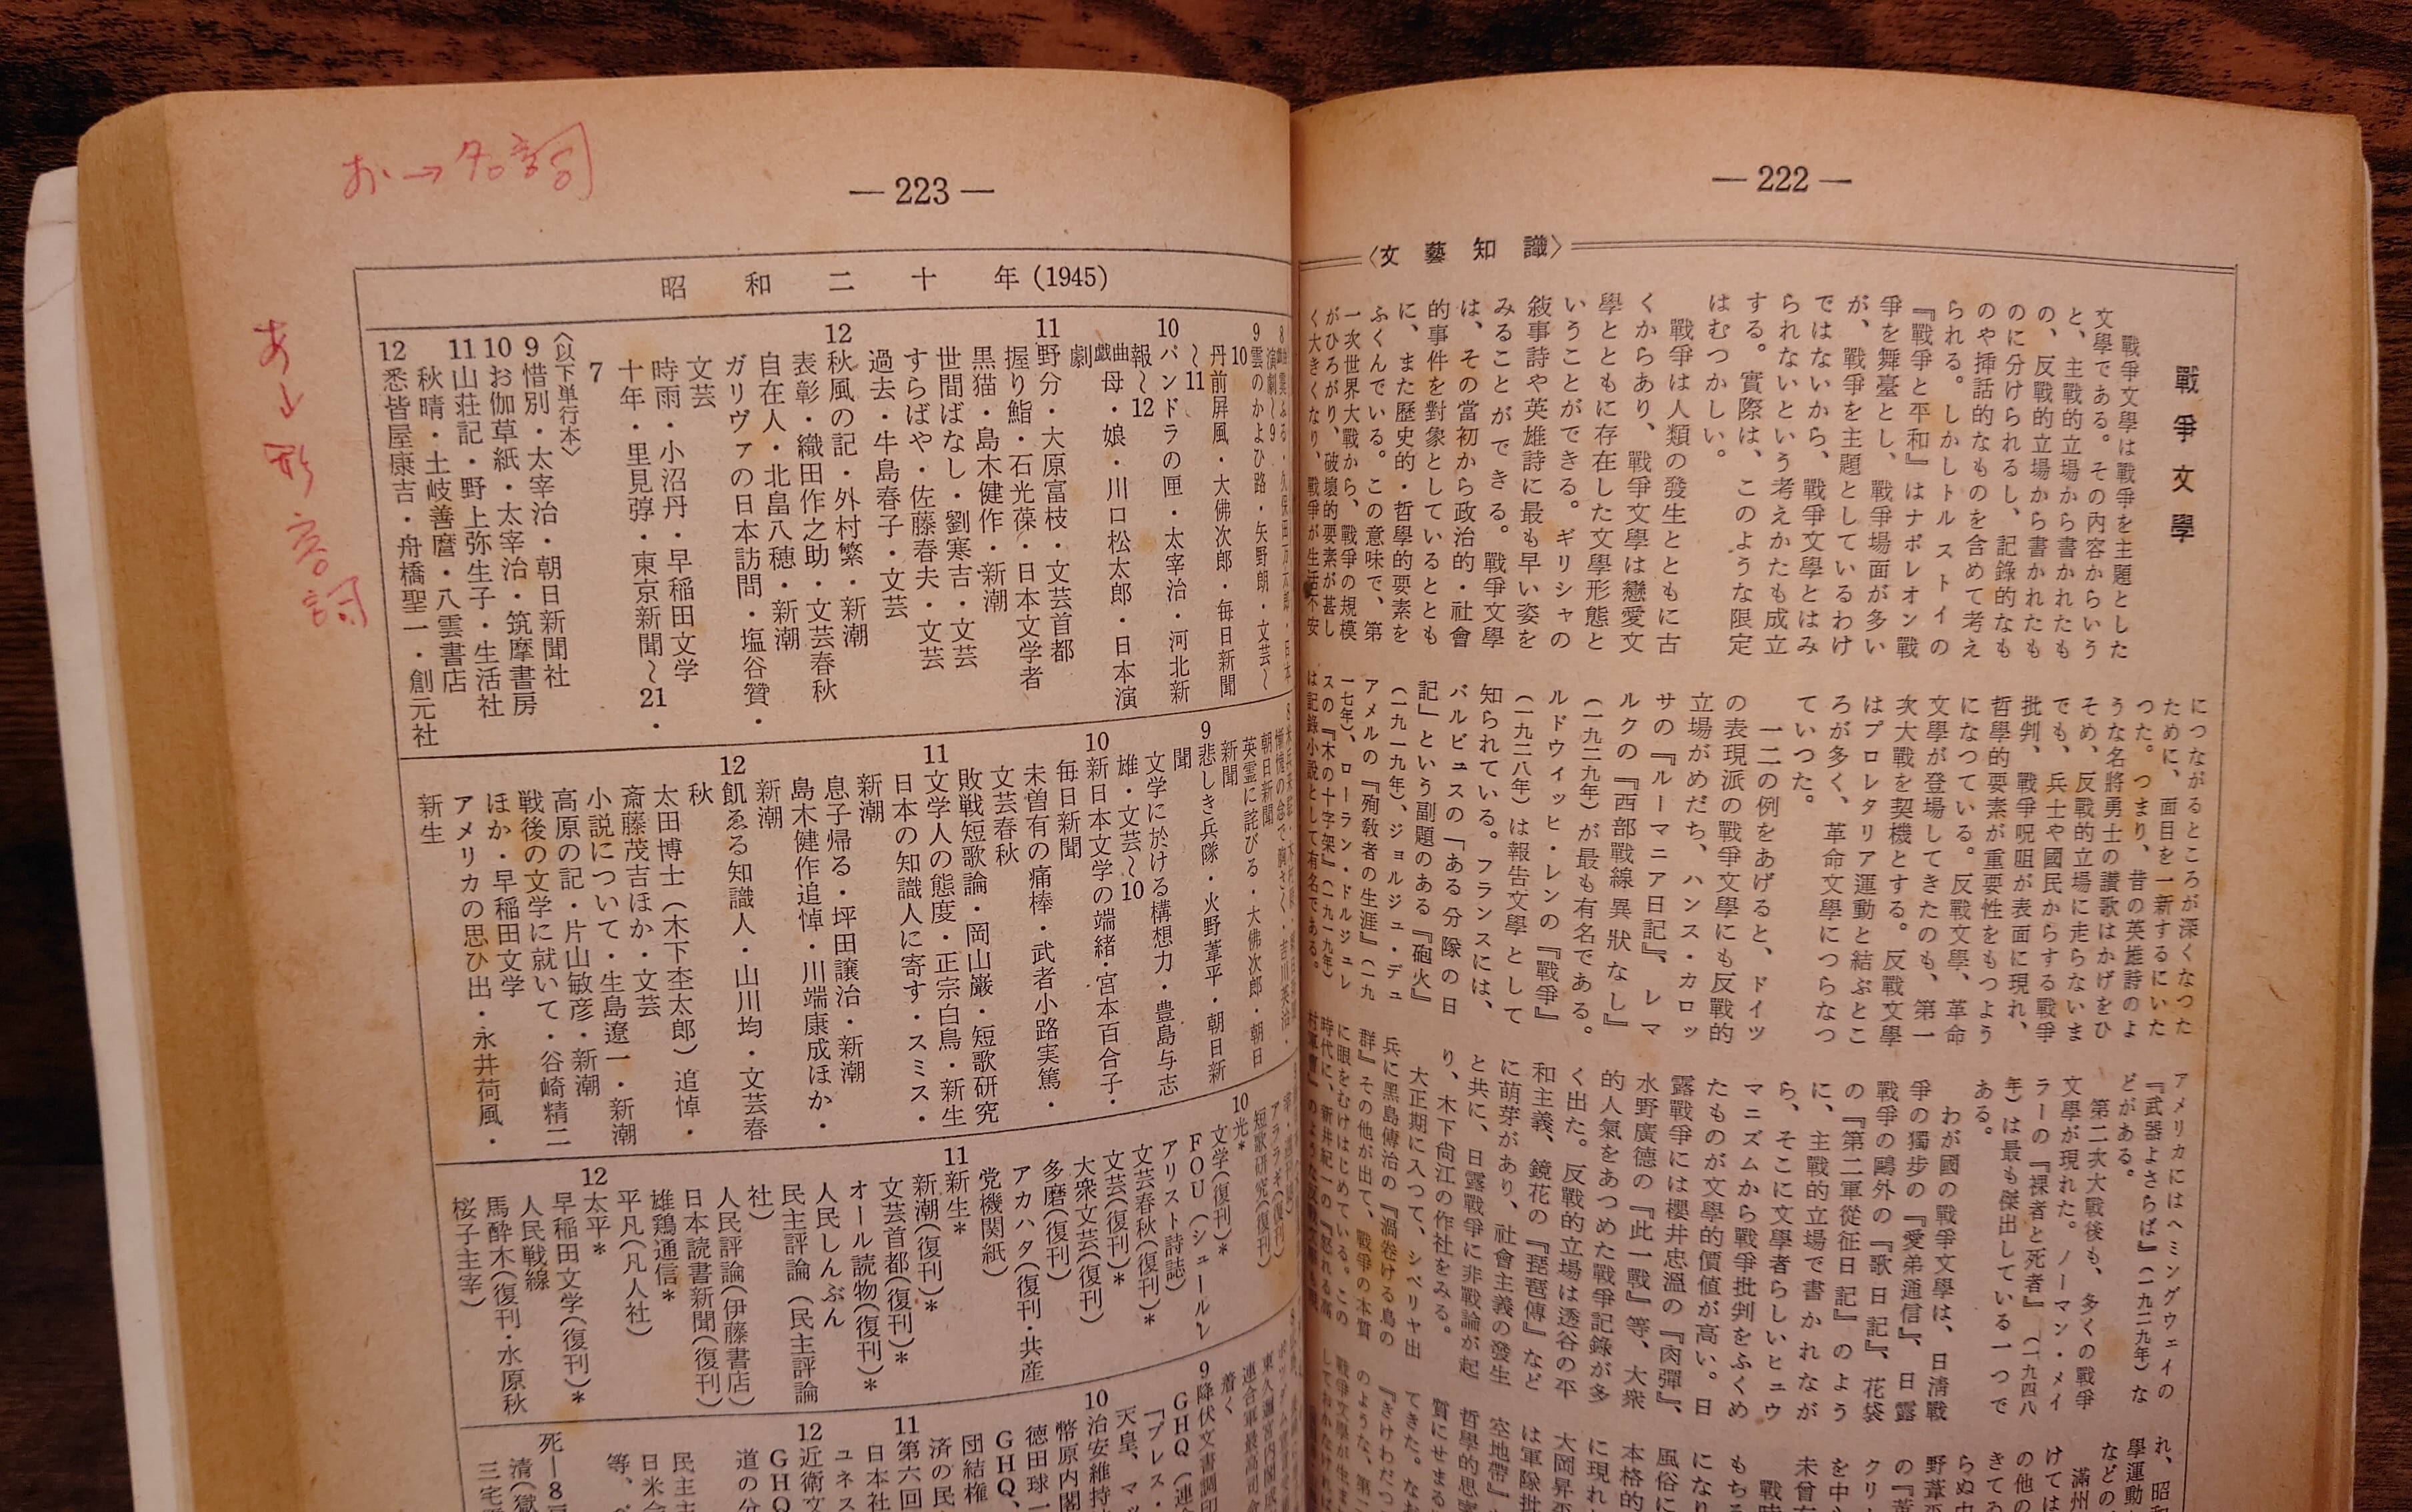 — 222 —
〈文藝知識〉
戰爭文學
戰爭文學は戰爭を主題とした
文學である。その內容からいう
と、主戰的立場から書かれたも
の、反戰的立場から書かれたも
のに分けられるし、記錄的なも
のや挿話的なものを含めて考え
られる。しかしトルストイの
『戰爭と平和』はナポレオン戰
爭を舞臺とし、戰爭場面が多い
が、戰爭を主題としているわけ
ではないから、戰爭文學とはみ
られないという考えかたも成立
する。實際は、このような限定
はむつかしい。
戰爭は人類の發生とともに古
くからあり、戰爭文學は戀愛文
學とともに存在した文學形態と
いうことができる。ギリシャの
敍事詩や英雄詩に最も早い姿を
みることができる。戰爭文學
は、その當初から政治的・社會
的事件を對象としているととも
に、また歷史的・哲學的要素を
ふくんでいる。この意味で、第
一次世界大戰から、戰爭の規模
がひろがり、破壞的要素が甚し
く大きくなり、戰爭が生活不安
につながるところが深くなつた
ために、面目を一新するにいた
つた。つまり、昔の英雄詩のよ
うな名將勇士の讚歌はかげをひ
そめ、反戰的立場に走らないま
でも、兵士や國民からする戰爭
批判、戰爭呪咀が表面に現れ、
哲學的要素が重要性をもつよう
になつている。反戰文學、革命
文學が登場してきたのも、第一
次大戰を契機とする。反戰文學
はプロレタリア運動と結ぶとこ
ろが多く、革命文學につらなつ
ていつた。
一二の例をあげると、ドイツ
の表現派の戰爭文學にも反戰的
立場がめだち、ハンス・カロッ
サの『ルーマニア日記』、レマ
ルクの『西部戰線異狀なし』
（一九二九年）が最も有名である。
ルドウィッヒ・レンの『戰爭』
（一九二八年）は報告文學として
知られている。フランスには、
バルビュスの「ある分隊の日
記」という副題のある『砲火』
（一九一九年）、ジョルジュ・デュ
アメルの『殉敎者の生涯』（一九
一七年）、ローラン・ドルジュレ
スの『木の十字架』（一九一九年）
は記錄小說として有名である。
アメリカにはヘミングウェイの
『武器よさらば』（一九二九年）な
どがある。
第二次大戰後も、多くの戰爭
文學が現れた。ノーマン・メイ
ラーの『裸者と死者』（一九四八
年）は最も傑出している一つで
ある。
わが國の戰爭文學は、日淸戰
爭の獨步の『愛弟通信』、日露
戰爭の鷗外の『歌日記』、花袋
の『第二軍從征日記』のよう
に、主戰的立場で書かれなが
ら、そこに文學者らしいヒュウ
マニズムから戰爭批判をふくめ
たものが文學的價値が高い。日
露戰爭には櫻井忠溫の『肉彈』、
水野廣德の『此一戰』等、大衆
的人氣をあつめた戰爭記錄が多
く出た。反戰的立場は透谷の平
和主義、鏡花の『琵琶傳』など
に萌芽があり、社會主義の發生
と共に、日露戰爭に非戰論が起
り、木下尙江の作社をみる。
大正期に入つて、シベリヤ出
兵に黑島傳治の『渦卷ける鳥の
群』その他が出て、戰爭の本質
に眼をむけはじめている。この
れ、昭和
學運動
などの
滿州
けては
の他の
きてゐ
— 223 —
お→名詞
あ→形容詞
昭和二十年(1945)
9雲のかよひ路・矢野朗・文芸～
10
丹前屛風・大佛次郎・毎日新聞
～11
10パンドラの匣・太宰治・河北新
報～12
戯曲母・娘・川口松太郎・日本演
劇
11野分・大原富枝・文芸首都
握り鮨・石光葆・日本文学者
黒猫・島木健作・新潮
世間ばなし・劉寒吉・文芸
すらばや・佐藤春夫・文芸
過去・牛島春子・文芸
12秋風の記・外村繁・新潮
表彰・織田作之助・文芸春秋
自在人・北畠八穂・新潮
ガリヴァの日本訪問・塩谷贊・
文芸
時雨・小沼丹・早稲田文学
十年・里見弴・東京新聞～21・
7
〈以下単行本〉
9惜別・太宰治・朝日新聞社
10お伽草紙・太宰治・筑摩書房
11山荘記・野上弥生子・生活社
秋晴・土岐善麿・八雲書店
12悉皆屋康吉・舟橋聖一・創元社
朝日新聞
英霊に詫びる・大佛次郎・朝日
新聞
9悲しき兵隊・火野葦平・朝日新
聞
文学に於ける構想力・豊島与志
雄・文芸～10
10新日本文学の端緒・宮本百合子・
毎日新聞
未曽有の痛棒・武者小路実篤・
文芸春秋
敗戦短歌論・岡山巌・短歌研究
11文学人の態度・正宗白鳥・新生
日本の知識人に寄す・スミス・
新潮
息子帰る・坪田譲治・新潮
島木健作追悼・川端康成ほか・
新潮
12飢ゑる知識人・山川均・文芸春
秋
太田博士（木下杢太郎）追悼・
斎藤茂吉ほか・文芸
小説について・生島遼一・新潮
高原の記・片山敏彦・新潮
戦後の文学に就いて・谷崎精二
ほか・早稲田文学
アメリカの思ひ出・永井荷風・
新生
アララギ(復刊)
短歌研究(復刊)
10光*
文学(復刊)*
FOU（シュールレ
アリスト詩誌）
文芸春秋(復刊)*
文芸(復刊)*
大衆文芸(復刊)
多磨(復刊)
アカハタ(復刊・共産
党機関紙)
11新生*
新潮(復刊)*
文芸首都(復刊)*
オール読物(復刊)*
人民しんぶん
民主評論（民主評論
社）
人民評論(伊藤書店)
日本読書新聞(復刊)
雄鶏通信*
平凡(凡人社)
12太平*
早稲田文学(復刊)*
人民戦線
馬酔木(復刊・水原秋
桜子主宰)
着く
9降伏文書調印
GHQ（連合
「プレス・
天皇、マッ
10治安維持
幣原内閣
徳田球一
GHQ、
団結権
済の民
11第六回
日本社
ユネス
12近衛文
GHQ
道の分
民主主
日米会
等、
死—8
清(獄
三宅